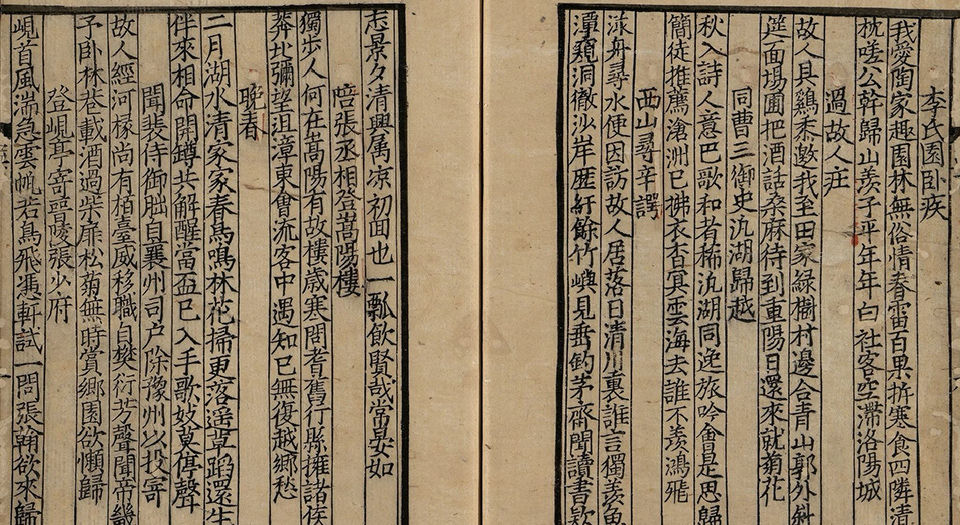 李氏園卧疾
我愛陶家趣園林無俗情春雷百果拆寒食四隣清
枕嗟公幹歸山羨子平年年白社客空滯洛陽城
過故人庄
故人具鷄黍邀我至田家緑樹村邊合青山郭外斜
筵面場圃把酒話桑麻待到重陽日還來就菊花
同曹三御史汎湖歸越
秋入詩人意巴歌和者稀汎湖同逸旅吟會是思歸
簡徒推薦滄洲已拂衣杳冥雲海去誰不羨鴻飛
西山尋辛諤
漾舟尋水便因訪故人居落日清川裏誰言獨羨魚
潭窺洞徹沙岸歴紆餘竹嶼見垂釣茅齋聞讀書欵
志景々清興属凉初回也一瓢飲賢哉常晏如
陪張丞相登嵩陽樓
獨步人何在嵩陽有故樓歳寒問耆舊行縣擁諸侯
莽北彌望沮漳東會流客中遇知已無復越郷愁
晩春
二月湖水清家家春鳥鳴林花掃更落遥草蹈還生
伴來相命開罇共解酲當盃已入手歌妓莫停聲
聞裴侍御朏自襄州司户除豫州以投寄
故人經河掾尚有栢臺威移職自樊衍芳聲聞帝畿
子卧林巷載酒過柴扉松菊無時賞郷園欲懶歸
登峴亭寄晉陵張少府
峴首風湍急雲帆若鳥飛憑軒試一問張翰欲來歸